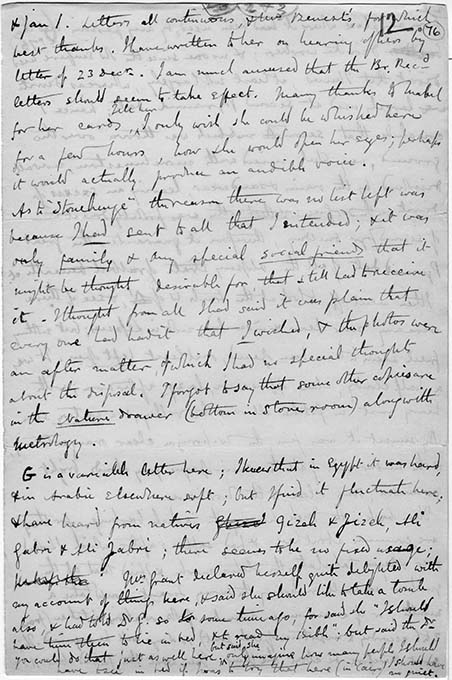 2
76
& Jan 1. Letters all continuous, & Miss Benest's for which
best thanks. I have written to her on hearing of hers by
letter of 23 Decr. I am much amused that the Br. Recd
letters should seem to take effect. Many thanks to Mabel
for her cards, I only wish she could be whisked here
for a few hours, how she would open her eyes; perhaps
it would actually produce an audible voice.
As to "Stonehenge" the reason there was no list left was
because I had sent to all that I intended; & it was
only family & any special social friend that it
might be thought desirable for that still had to receive
it. I thought from all I had said it was plain that
every one had had it that I wished, & the photos were
an after matter of which I had no special thought
about the disposal. I forgot to say that some other copies are
in the Nature drawer (bottom in store room) along with
Metrology.
G is a variable letter here; I knew that in Egypt it was hard,
& in Arabic elsewhere soft; but I find it fluctuate here,
& have heard from natives Gizeh & Jizeh, Ali
Gabri & Ali Jabri; there seems to be no fixed usage;
Mrs. Grant declared herself quite delighted with
my account of things here, & said she should like to take a tomb
also, & had told Dr G. so some time ago, for said she "I should
have time then to lie in bed, & read my bible"; but said the Dr
you could do that just as well here, but said she only imagine how many people I should
have here in bed if I was to try that here (in Cairo) I should have
no quiet.